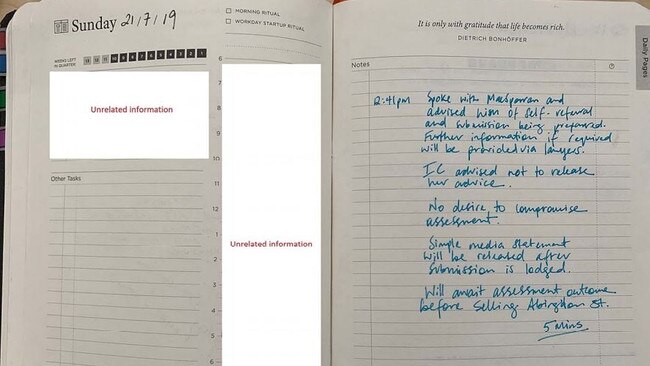 Sunday 21/7/19
WEEKS LEFT
IN QUARTER
13 12 11 10 9 8 7 6 5 4 3 2 1
Unrelated information
Other Tasks
MORNING RITUAL
WORKDAY STARTUP RITUAL
6
7
8
9
10
11
12
1
2
3
4
5
6
Unrelated information
It is only with gratitude that life becomes rich.
DIETRICH BONHÖFFER
Daily Pages
Notes
12:41pm Spoke with MacSporran and
advised him of self-referral
and submission being prepared.
Further information if required
will be provided via lawyers.
IC advised not to release
her advice.
No desire to compromise
assessment.
Simple media statement
will be released after
submission is lodged.
Will await assessment outcome
before selling Abingdon St.
5 mins